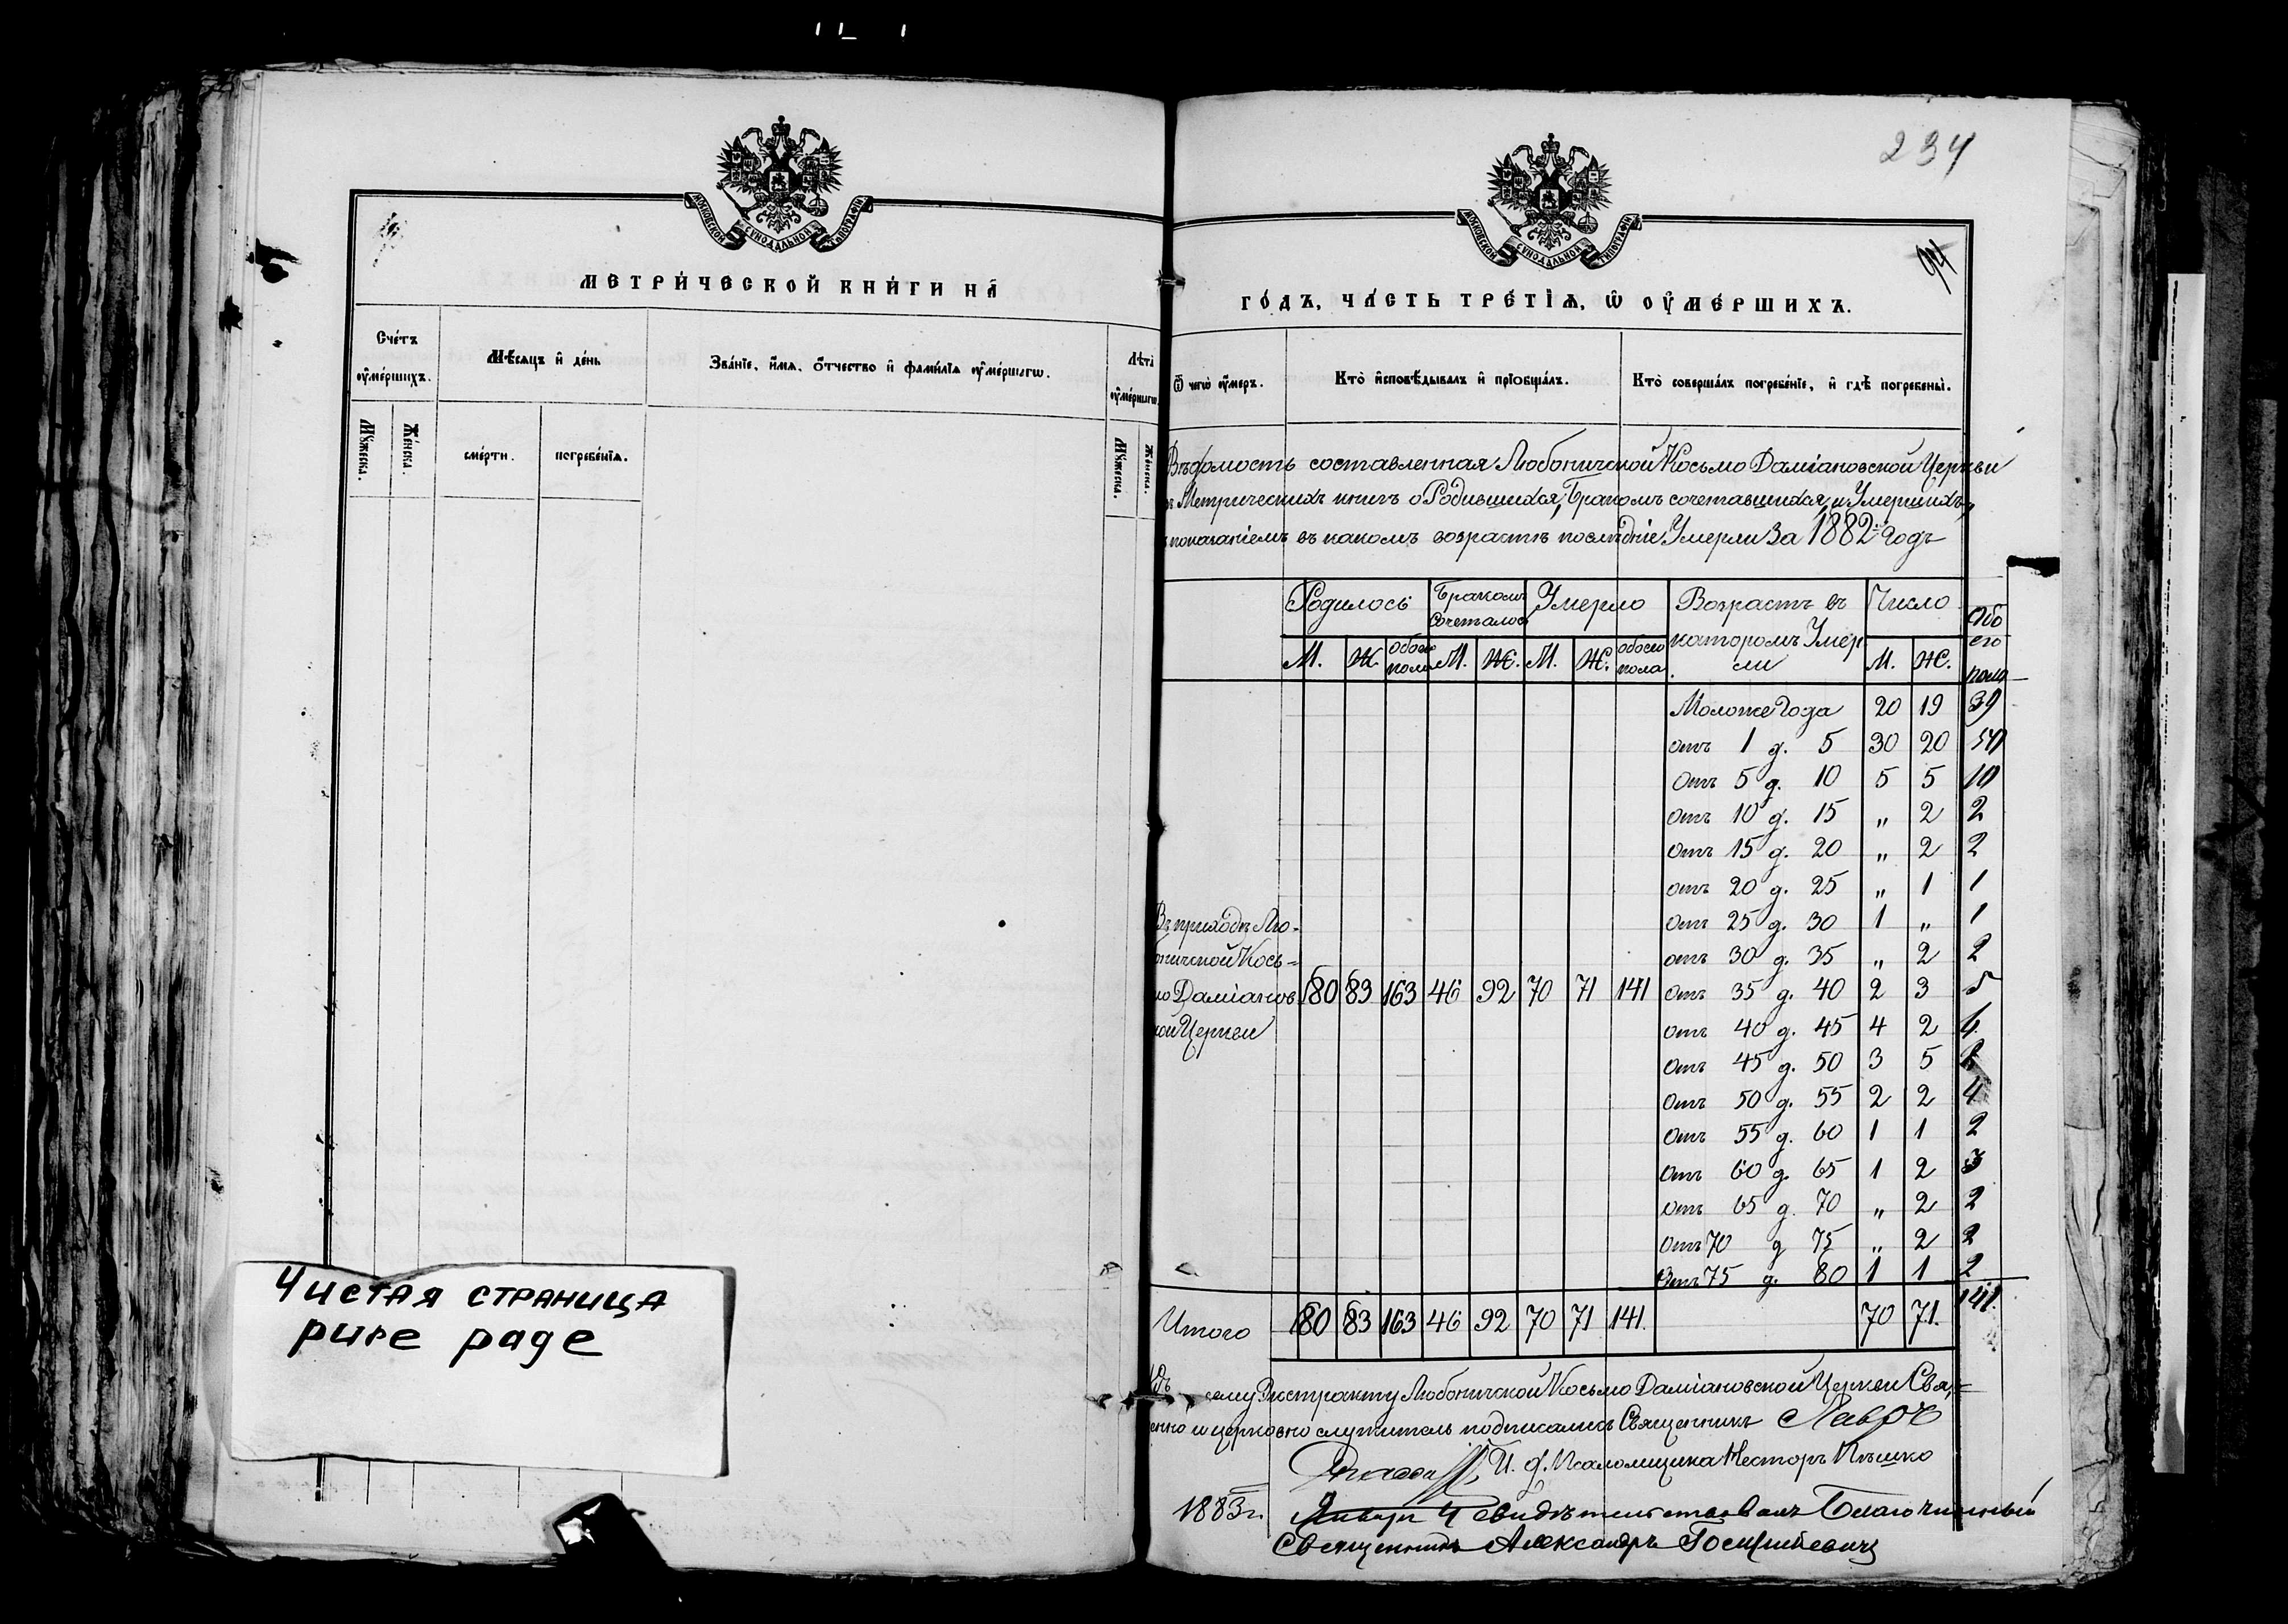 234
94
МОСКОВСКОЙ СѴНОДАЛЬНОЙ ТИПОГРАФІИ
МЕТРИ́ЧЕСКОЙ КНИ́ГИ НА̀
Сче́тъ ᲂу҆ме́ршихъ.
Мѣ́сяцъ и҆ де́нь
Зва́нїе, и҆́мя, ѻ҆́тчество и҆ фами́лїя ᲂу҆ме́ршагѡ.
Лѣ́та ᲂу҆ме́ршагѡ.
Мꙋ́жеска.
Же́нска.
сме́рти.
погребе́нїя.
Мꙋ́жеска.
Же́нска.
Чистая страница
pure page
МОСКОВСКОЙ СѴНОДАЛЬНОЙ ТИПОГРАФІИ
ГО́ДЪ, ЧА́СТЬ ТРЕ́ТЇѦ, Ѡ҆ ОУ҆МЕ́РШИХЪ.
Ѿ чегѡ̀ ᲂу҆́меръ.
Кто̀ и҆сповѣ́дывалъ и҆ прїѡбща́лъ.
Кто̀ соверша́лъ погребе́нїе, и҆ гдѣ̀ погребены̀.
Вѣдомость составленная Любоничской Косьмо Даміановской Церкви
Метрическихъ книгъ о Родившихся, Бракомъ сочетавшихся и Умершихъ,
показаніемъ въ какомъ возрастѣ послѣдніе Умерли За 1882 Годъ
Родилось Бракомъ Сочеталось Умерло Возрастъ въ Число Обо
котором Умер его
М. Ж. обоего пола М. Ж. М. Ж. обоего пола ли М. Ж. пола
Моложе Года 20 19 39
отъ 1 д. 5 30 20 50
Отъ 5 д. 10 5 5 10
Отъ 10 д. 15 „ 2 2
отъ 15 д. 20 „ 2 2
отъ 20 д. 25 „ 1 1
Отъ 25 д. 30 1 „ 1
отъ 30 д. 35 „ 2 2
Въ приходѣ Лю-
бничской Кось=
мо Даміанов. 80 83 163 46 92 70 71 141 Отъ 35 д. 40 2 3 5
кой Церкви
отъ 40 д. 45 4 2 6
отъ 45 д. 50 3 5 8
Отъ 50 д. 55 2 2 4
отъ 55 д. 60 1 1 2
отъ 60 д. 65 1 2 3
отъ 65 д. 70 „ 2 2
отъ 70 д 75 „ 2 2
Отъ 75 д. 80 1 1 2
Итого 80 83 163 46 92 70 71 141. 70 71. 141.
сему Экстракту Любоничской Косьмо Даміановской Церкви Свя,=
енно и церковно служитель подписались Священникъ Лавръ
И. д. Псаломщика Несторъ Пышко
1883 г. Января 4 свидѣтельствовалъ Благочинный
Священникъ Александръ